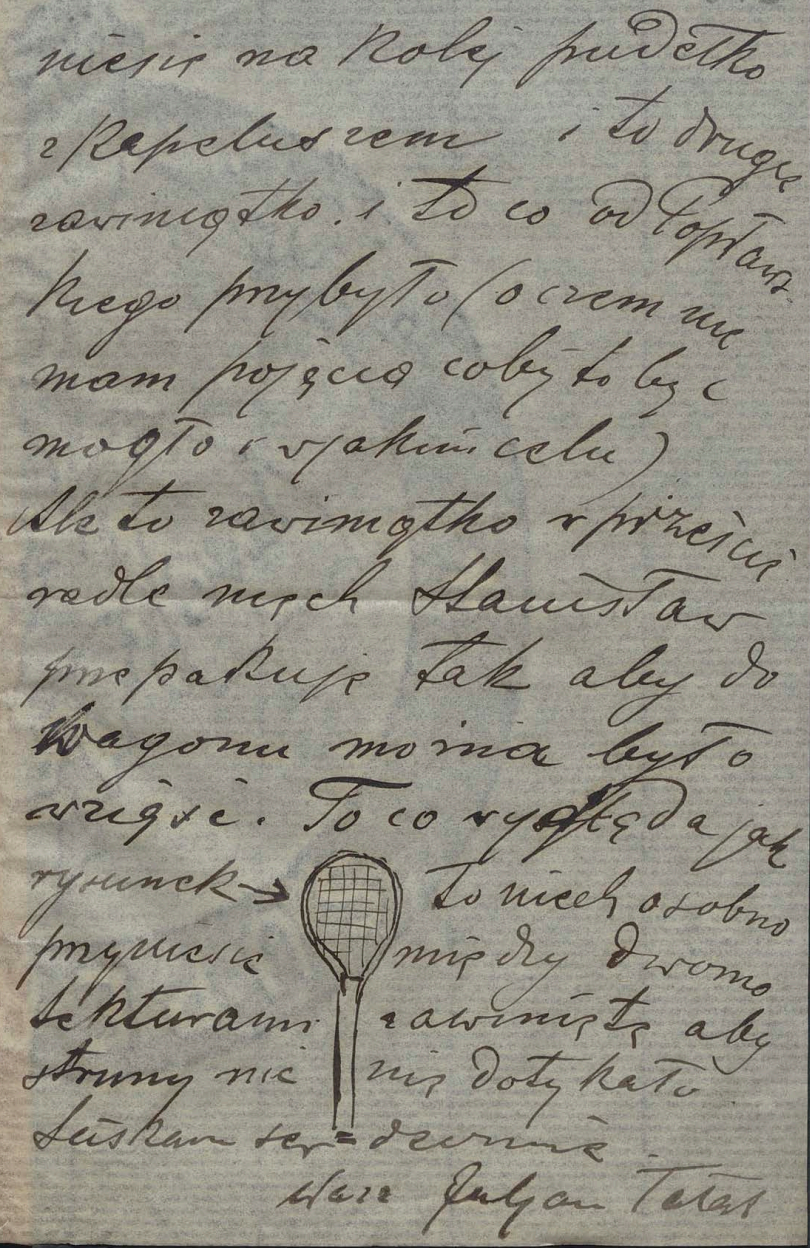 niesie na kolej pudełko
z kapeluszem i to drugie
zawiniątko. i to co od Popławs-
kiego przybyło (o czem nie
mam pojęcia coby to być
mogło i w jakim celu)
Ale to zawiniątko w przeście
radle niech Stanisław
przepakuje tak aby do
wagonu można było
wziąść. To co wygląda jak
rysunek → to niech osobno
przyniesie między dwoma
tekturami zawinięte aby
struny nic nie dotykało
Ściskam ser=decznie.
Wasz Juljan Fałat